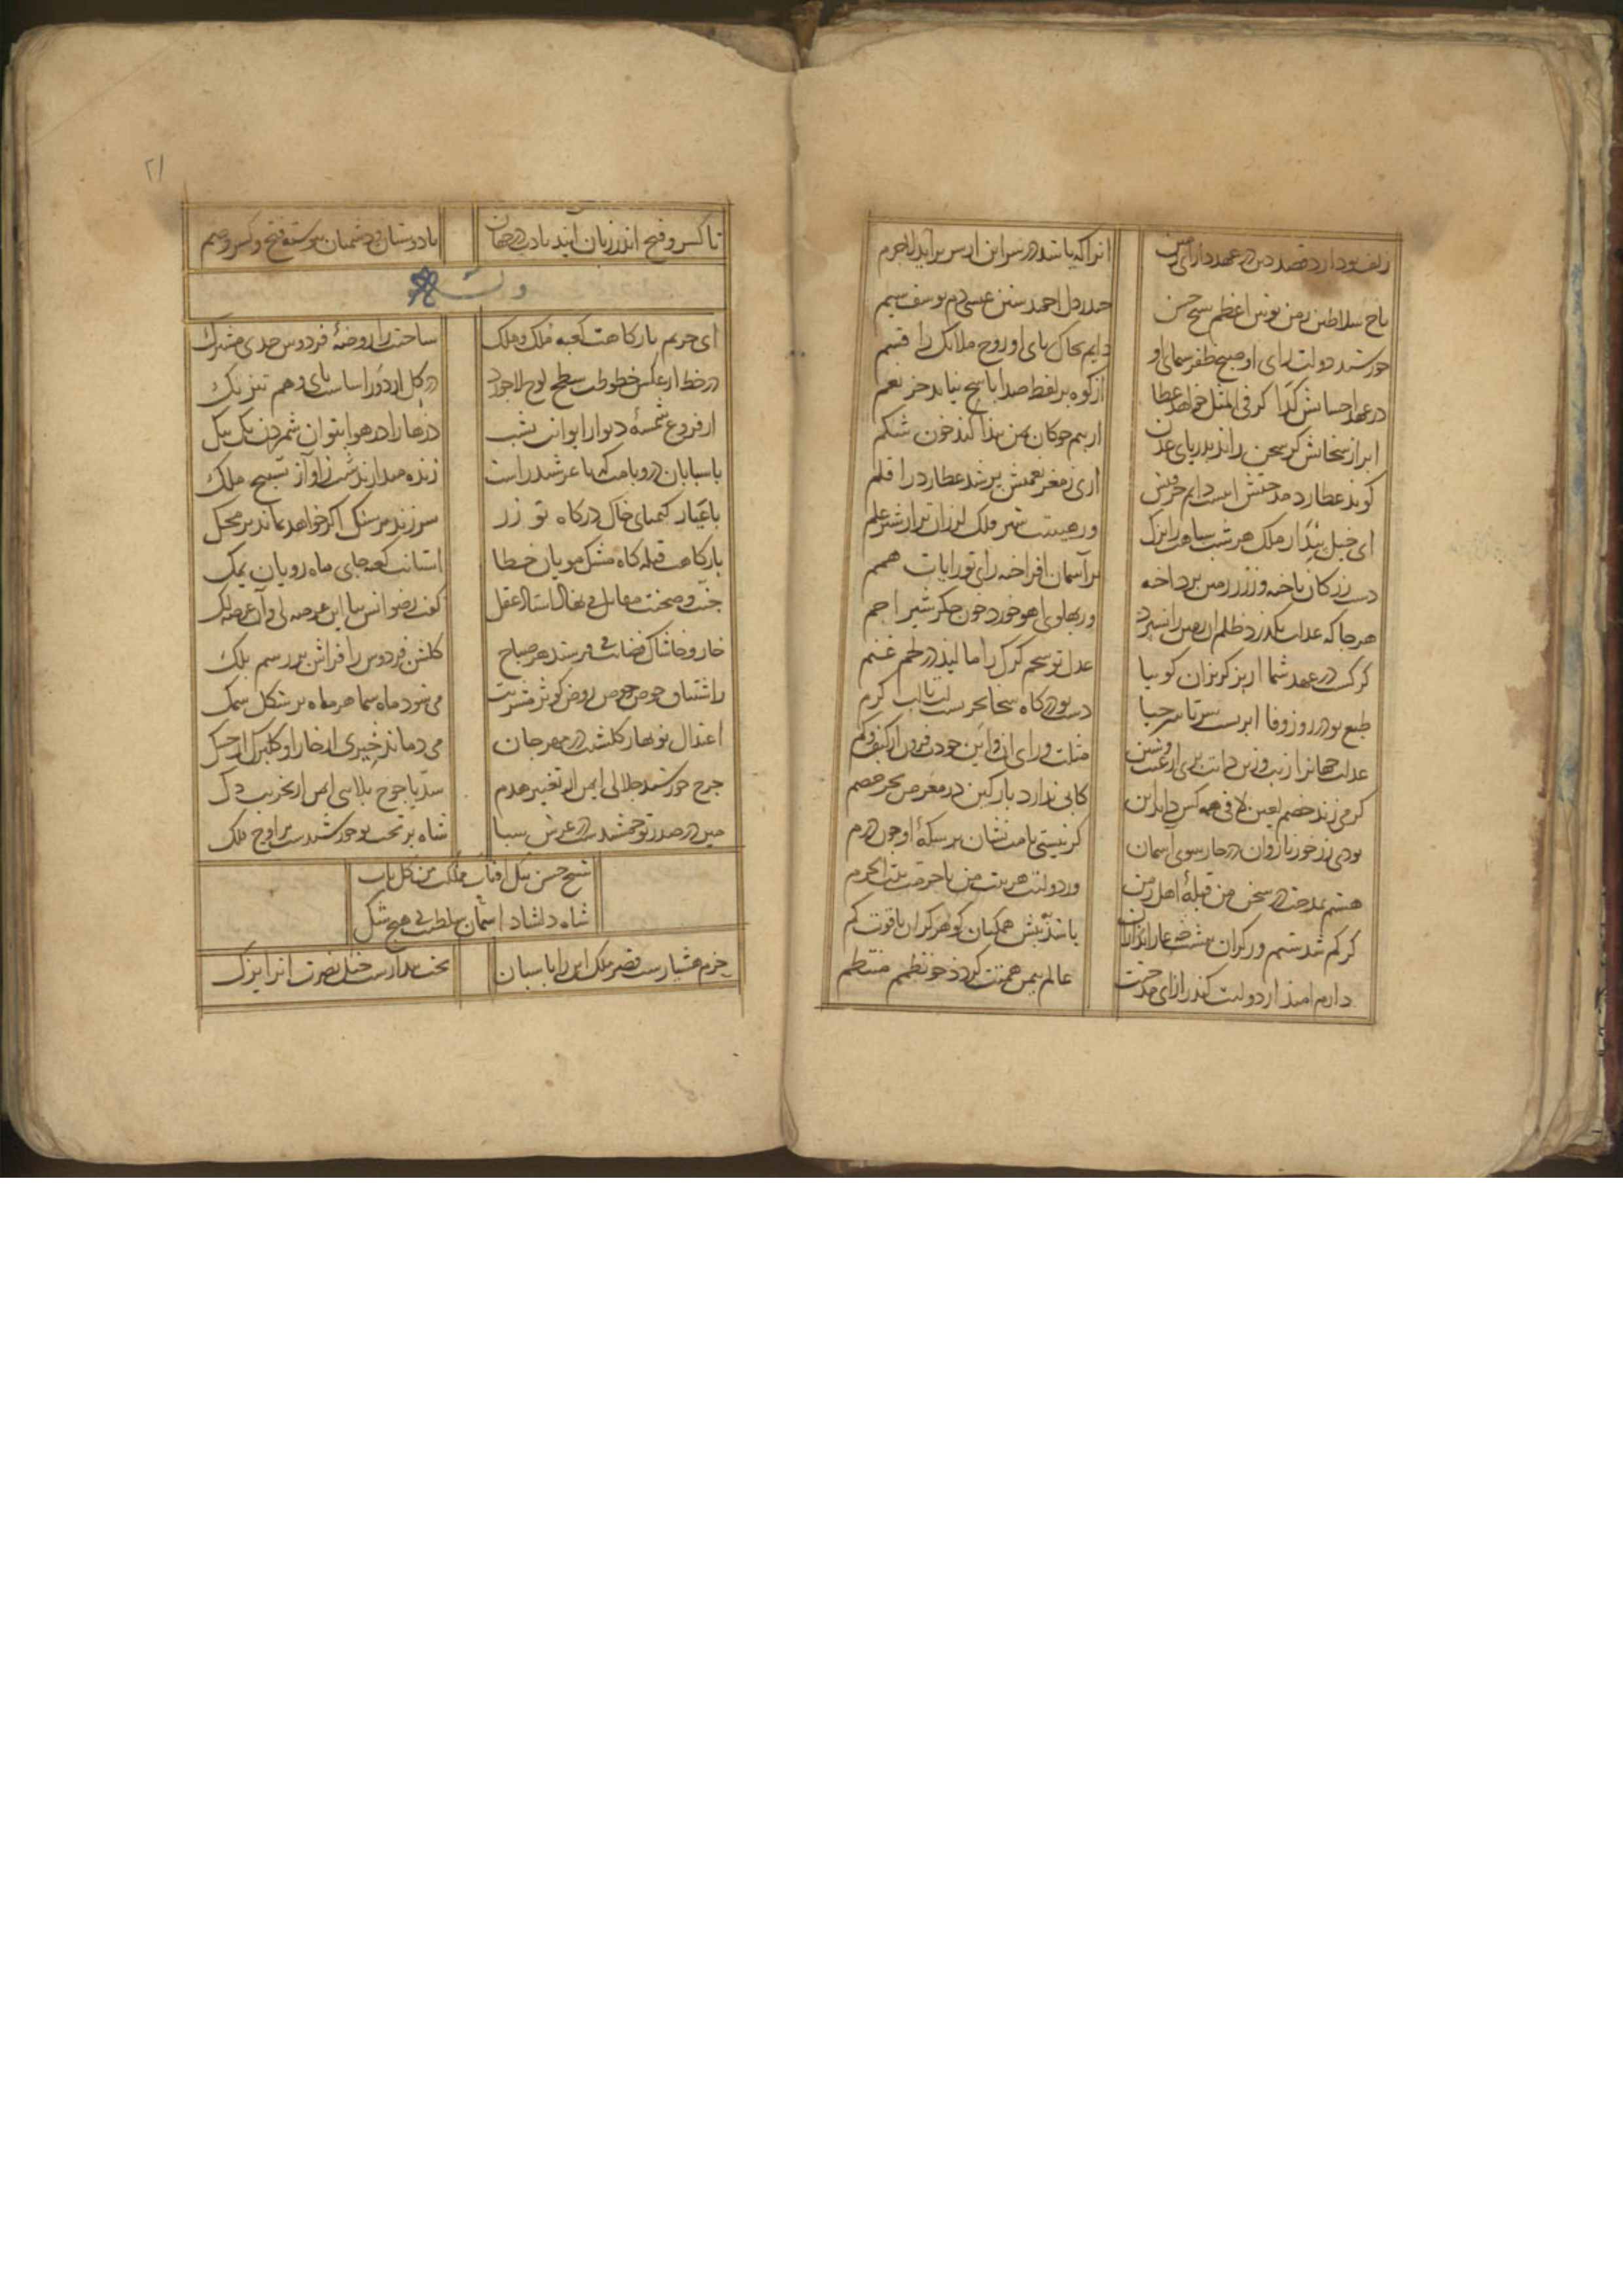 زلف تو دارد قصد دین در عهد دارای زمین انرا که باشد در سر این از سر براید لاجرم
تاج سلاطین زمن نوین اعظم شیخ حسن حیدر دل احمد سنن عیسی دم یوسف شیم
خورشید دولت رای او صبح ظفر سیمای او دایم بخاک پای او روح ملائک را قسم
در عهد احسانش کدا کر فی المثل خواهد عطا از کوه بر لفظ صدا پاسخ نیاید جز نعم
ابر از سخاش کر سخن راند بدریای عدن از بیم چو کان من بندد خون شکم
کوید عطارد مدحتش اینست دایم حرفتش اری ز مغز نعمتش پر شد عطارد را قلم
ای خیل بیدار ملک هر شب سپاهت را یزک وز هیبت شیر فلک لرزان تر از شیر علم
دست زر کان باخته وز زر زمین پرداخته بر آسمان افراخته رای تو رایات همم
هر جا که عدلت بگذرد ظلم ان زمین را نسپرد ور پهلوی اهو خورد خون جکر شیر اجم
کرکست در عهد شما از بز کریزان کوییا عدل تو شحم کرک را مالید در طعم غنم
طبع تو در روز وفا ابریست سر تا سر حیا دست تو در کاه سخا بحریست لب تا لب کرم
عدلت جهانرا زیب و زین ذاتت بری از عیب و شین مثلت ورای ان و این خود نیز از کیف و کم
کر می زند خصم لعین لافی همه کس داند این کابی ندارد پارکین در معرض بحر خضم
بودی زر خور ناروان در چار سوی آسمان کر نیستی نامت نشان بر سکه او چون درم
هستم بمدحت در سخن من قبله اهل زمن وز دولتت هر بیت من با حرمت بیت الحرم
کر کم شدستم ور کران نبیشت عار از ان باشد بپیش همکنان کوهر کران یاقوت کم
دارم امید از دولتت کندر ازای مدحتت عالم بیمن همتت کردد چو نظمم منتظم
۲۱
تا کسر و فتح اندر زبان ایند بادت در جهان با دوستان و دشمنان پیوسته فتح و کسر و ضم
وله
ای حریم بارکاهت کعبه ملک و ملک ساحتت را روضه فردوس حدی مشترک
در خط از عکس خطوطت سطح لوح لاجورد در کل از دور اساست پای وهم تیز تک
از فروغ شمسه دیوار ایوانت بشب ذرها را در هوا بتوان شمردن یک بیک
پاسبانان در و بامت که با عرشند راست زنده میدارند شب ز اواز تسبیح ملک
با عیار کیمیای خاک درکاه تو زر سر زند بر سنک اکر خواهد نماند بر محک
بارکاهت قبله کاه مشک مویان خطا استانت کعبه جای ماه رویان یمک
جنت و صحنت مقابل می نهاد استاد عقل کفت رضوانش بیا این عرصه لی و آن عرصه لک
خار و خاشاک فضایت می فرستد هر صباح کلشن فردوس را فراش بر رسم بلک
ز اشتیاق حوض حوض روض کوثر مشربت می شود ماه سما هر ماه بر شکل سمک
اعتدال نو بهار کلشنت در مهرجان می دماند خیری از خار او کلبرک از حسک
چرخ خورشید جلالی ایمن از تغییر هدم سد یاجوج بلایی ایمن از تخریب دک
میر در صدر تو جمشید ست در عرش سبا شاه بر تخت تو خورشید ست بر اوج فلک
شیخ حسن بیک افتاب مملکت من کل باب
شاه دلشاد اسمان سلطنت بی هیچ شک
حزم هشیارست قصر ملک این را پاسبان بخت بیدارست خیل نصرت انرا یزک